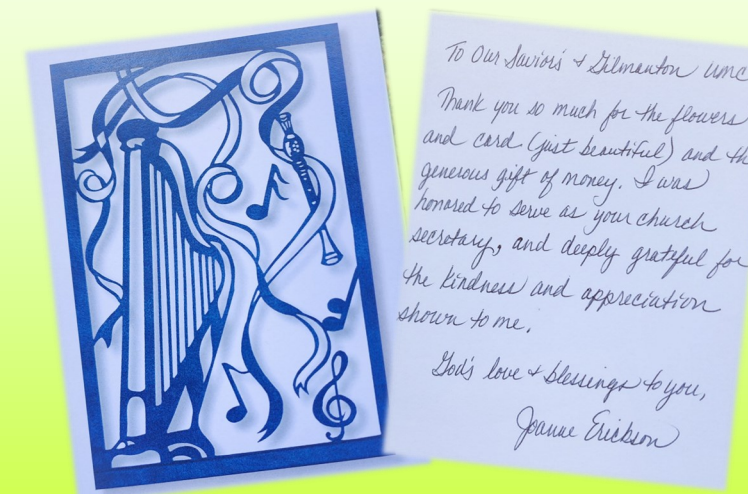 To Our Savior's & Gilmanton UMC
Thank you so much for the flowers
and card (just beautiful) and th
generous gift of money. I was
honored to serve as your church
secretary, and deeply grateful for
the kindness and appreciation
shown to me.
God's love & blessings to you,
Joanne Erickson